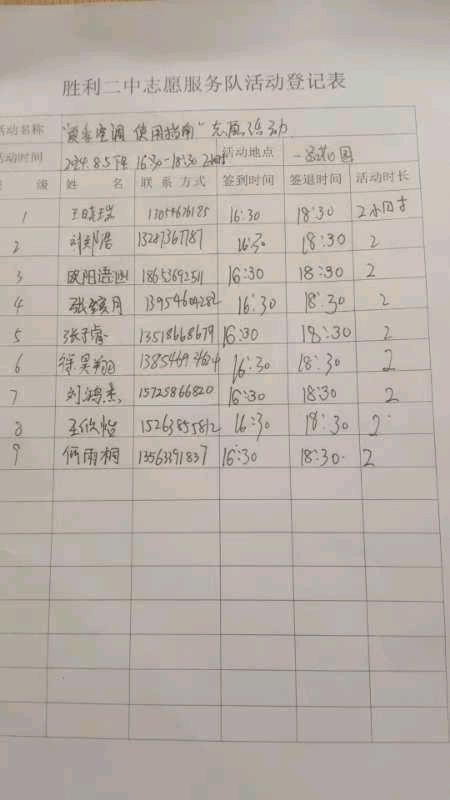 胜利二中志愿服务队活动登记表
活动名称 "夏季空调使用指南"志愿活动
活动时间 16:30-18:30 2小时 活动地点
级 姓 名 联系方式 签到时间 签退时间 活动时长
1 16:30 18:30 2小时
2 13287367787 16:30 18:30 2
3 18653692511 16:30 18:30 2
4 16:30 18:30 2
5 13518668679 16:30 18:30 2
6 徐昊翔 16:30 18:30 2
7 刘鸿杰 15725866820 16:30 18:30 2
8 王欣怡 15263855812 16:30 18:30 2
9 何雨桐 13563391837 16:30 18:30 2